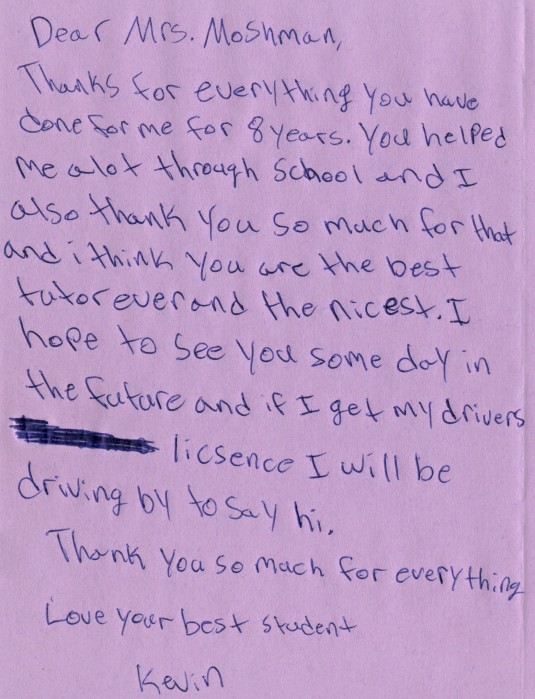 Dear Mrs. Moshman,
Thanks for everything you have
done for me for 8 years. You helped
me alot through school and I
also thank you so much for that
and i think you are the best
tutor ever and the nicest. I
hope to see you some day in
the future and if I get my drivers
licsence I will be
driving by to say hi.
Thank you so much for everything
Love your best student
Kevin